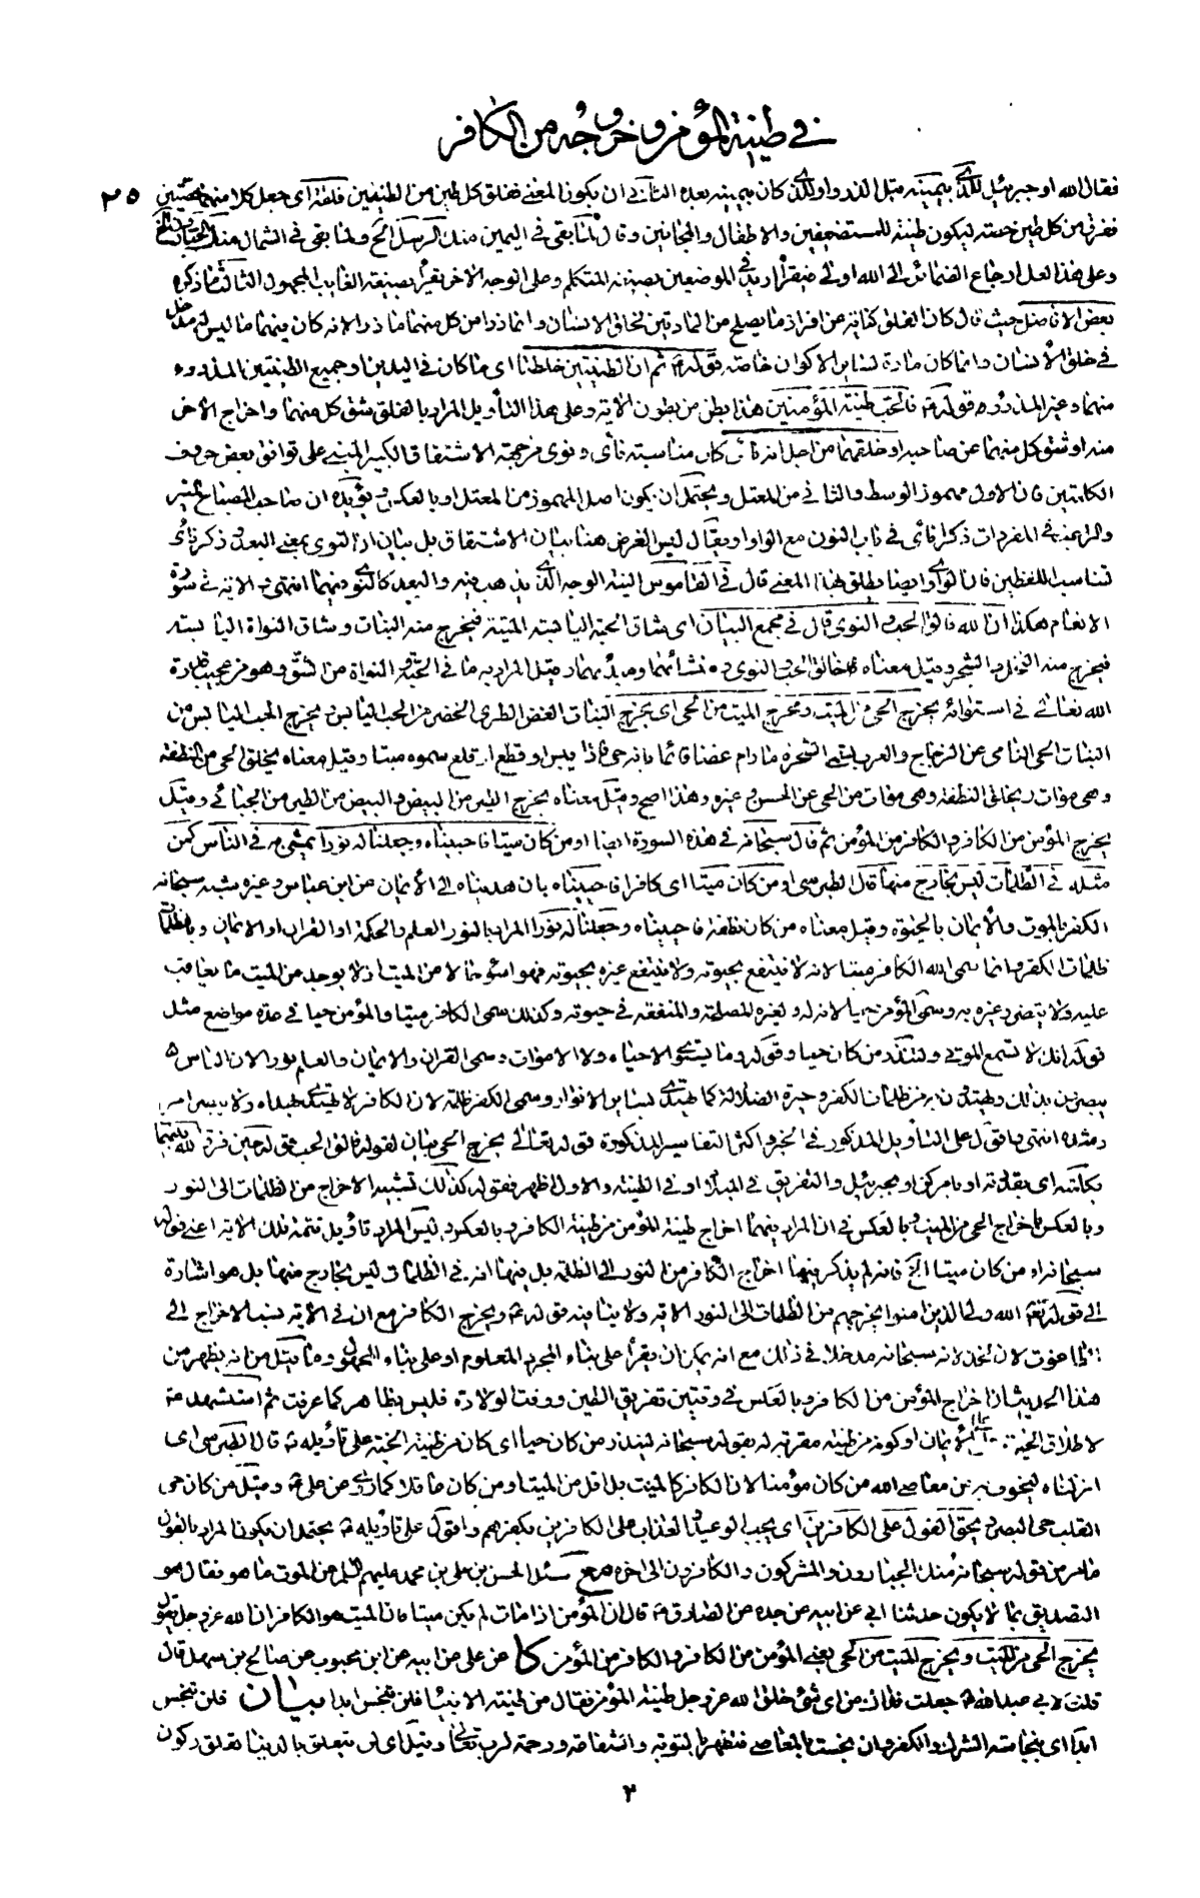 في طينة المؤمن و خروجه من الكافر
٢٥
فقال الله او جبرئيل للذي بيمينه قبل الذرو او للذي كان بيمينه بعده الثاني ان يكون المعنى ففلق كل طين من الطينين فلقة اي جعل كلا منهما حصتين
ففرق من كل طين حصته ليكون طينة للمستضعفين والاطفال والمجانين وقال لما بقي في اليمين منك الرسل الخ ولما بقي في الشمال منك الجبارون الخ
وعلى هذا لعل ارجاع الضمائر الى الله اولى فيقرأ اريد في الموضعين بصيغة المتكلم وعلى الوجه الاخر يقرأ بصيغة الغايب المجهول الثالث ما ذكره
بعض الافاضل حيث قال كان الفلق كناية عن افراز ما يصلح من المادتين لخلق الانسان وانما ذرا من كل منهما ما ذرا لانه كان فيهما ما ليس له مدخل
في خلق الانسان وانما كان مادة لساير الاكوان خاصة قوله ع ثم ان الطينتين خلطتا اي ما كان في اليدين او جميع الطينتين المذروه
منهما وغير المذروه قوله ع فالحب طينة المؤمنين هذا بطن من بطون الاية وعلى هذا التأويل المراد بالفلق شق كل منهما واخراج الاخر
منه او شق كل منهما عن صاحبه او خلقهما من اجل انه نأى كان مناسبة نأى و نوى من جهة الاشتقاق الكبير المبني على توافق بعض حروف
الكلمتين فان الاول مهموز الوسط والثاني من المعتل ويحتمل ان يكون اصل المهموز من المعتل او بالعكس ويؤيده ان صاحب المصباح المنير
والراغب في المفردات ذكرا نأى في باب النون مع الواو او يقال ليس الغرض هنا بيان الاشتقاق بل بيان ان النوى بمعنى البعد وذكر نأى
لتناسب اللفظين فان النوى ايضا يطلق بهذا المعنى قال في القاموس النية الوجه الذي يذهب فيه والبعد كالنوى فيهما انتهى والاية في سورة
الانعام هكذا ان الله فالق الحب والنوى قال في مجمع البيان اي شاق الحبة اليابسة الميتة فيخرج منه النبات و شاق النواة اليابسة
فيخرج منه النخل والشجر وقيل معناه خالق الحب والنوى ومنشئهما ومبدئهما وقيل المراد به ما في الحبة والنواة من الشق وهو من عجيب قدرة
الله تعالى في استوائه يخرج الحي من الميت ومخرج الميت من الحي اي يخرج النبات الغض الطري الخضر من الحب اليابس ويخرج الحب اليابس من
النبات الحي النامي عن الزجاج والعرب تسمي الشجرة ما دام غضا قائما بانه حي فاذا يبس او قطع او قلع سموه ميتا وقيل معناه يخلق الحي من النطفة
وهي موات ويخلق النطفة وهي موات من الحي عن الحسن وغيره وهذا اصح وقيل معناه يخرج الطير من البيض والبيض من الطير عن الجبائي وقيل
يخرج المؤمن من الكافر والكافر من المؤمن ثم قال سبحانه في هذه السورة ايضا او من كان ميتا فاحييناه وجعلنا له نورا يمشي به في الناس كمن
مثله في الظلمات ليس بخارج منها قال الطبرسي او من كان ميتا اي كافرا فاحييناه بان هديناه الى الايمان عن ابن عباس وغيره شبه سبحانه
الكفر بالموت والايمان بالحيوة وقيل معناه من كان نطفة فاحييناه وجعلنا له نورا المراد بالنور العلم والحكمة او القران او الايمان وبالظلمات
ظلمات الكفر وانما سمى الله الكافر ميتا لانه لا ينتفع بحيوته ولا ينتفع غيره بحيوته فهو اسوء حالا من الميت اذ لا يوجد من الميت ما يعاقب
عليه ولا يتضرر غيره به وسمى المؤمن حيا لانه له ولغيره المصلحة والمنفعة في حيوته وكذلك سمى الكافر ميتا والمؤمن حيا في عدة مواضع مثل
قوله انك لا تسمع الموتى و لتنذر من كان حيا وقوله وما يستوي الاحياء ولا الاموات وسمى القران والايمان والعلم نورا لان الناس
يبصرون بذلك ويهتدون به من ظلمات الكفر وحيرة الضلالة كما يهتدى بساير الانوار وسمى الكفر ظلمة لان الكافر لا يهتدي بهداه ولا يبصر امر
رشده انتهى واقول على التأويل المذكور في الخبر واكثر التفاسير المذكورة قوله تعالى يخرج الحي بيان لقوله فالق الحب قوله حين فرق الله بينهما
بكلمته اي بقدرته او بامر كن او جبرئيل والتفريق في الميلاد او في الطينة والاول اظهر فقوله كذلك تشبيه الاخراج من الظلمات الى النور
وبالعكس باخراج الحي من الميت وبالعكس في ان المراد فيهما اخراج طينة المؤمن من طينة الكافر وبالعكس وليس المراد تأويل تتمة تلك الاية اعني قوله
سبحانه او من كان ميتا الخ فانه لم يذكر فيها اخراج الكافر من النور الى الظلمة بل فيها انه في الظلمات ليس بخارج منها بل هو اشارة
الى قوله تعالى الله ولي الذين امنوا يخرجهم من الظلمات الى النور الاية ولا ينافيه قوله ع ويخرج الكافر مع ان في الاية نسب الاخراج الى
الطاغوت لان لخذلانه سبحانه مدخلا في ذلك مع انه يمكن ان يقرأ على بناء المجرد المعلوم او على بناء المجهول وما قيل من انه يظهر من
هذا الحديث ان اخراج المؤمن من الكافر وبالعكس في وقتين تفريق الطين ووقت الولادة فليس بظاهر كما عرفت ثم استشهد ع
لاطلاق الحيوة على الايمان او كونه من طينة مقربة له بقوله سبحانه لينذر من كان حيا اي كان من طينة الجنة على تأويله ع قال الطبرسي اي
انزلناه ليخوف به من معاصي الله من كان مؤمنا لان الكافر كالميت بل اقل من الميت او من كان عاقلا كما روي عن علي ع وقيل من كان حي
القلب حي البصر ويحق القول على الكافرين اي يجب الوعيد والعذاب على الكافرين بكفرهم واقول على تأويله ع يحتمل ان يكون المراد بالقول
ما مر من قوله سبحانه منك الجبارون والمشركون والكافرون الى اخره مع سئل الحسن بن علي بن محمد عليهم السلم عن الموت ما هو فقال هو
التصديق بما لا يكون حدثنا ابي عن ابيه عن جده عن الصادق ع قال ان المؤمن اذا مات لم يكن ميتا فان الميت هو الكافر ان الله عز وجل يقول
يخرج الحي من الميت ويخرج الميت من الحي يعني المؤمن من الكافر والكافر من المؤمن كا عن علي عن ابيه عن ابن محبوب عن صالح بن سهل قال
قلت لابي عبد الله ع جعلت فداك من اي شئ خلق الله عز وجل طينة المؤمن فقال من طينة الانبياء فلن تنجس ابدا بيان فلن تنجس
ابدا اي بنجاسة الشرك والكفر وان نجست بالمعاصي فتطهر بالتوبة والشفاعة ورحمة الرب تعالى وقيل اي لن تتعلق بالدنيا تعلق ركون
٣